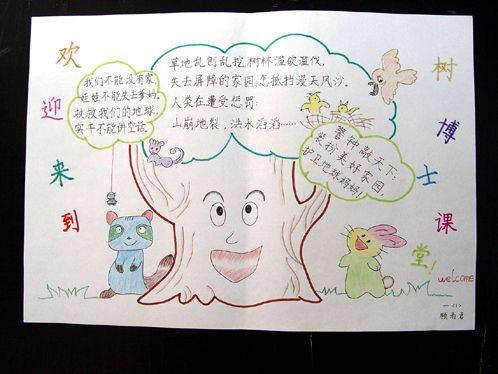 欢迎来到
树博士课堂!
welcome
我们不能没有家,
娃娃不能失去爹妈。
拯救我们的地球,
实干不能讲空话。
草地乱刨乱挖,树林滥砍滥伐,
失去屏障的家园,怎抵挡漫天风沙。
人类在遭受惩罚:
山崩地裂,洪水滔滔……
警钟敲天下:
装扮美好家园,
护卫地球妈妈!
一<1>
顾雨君